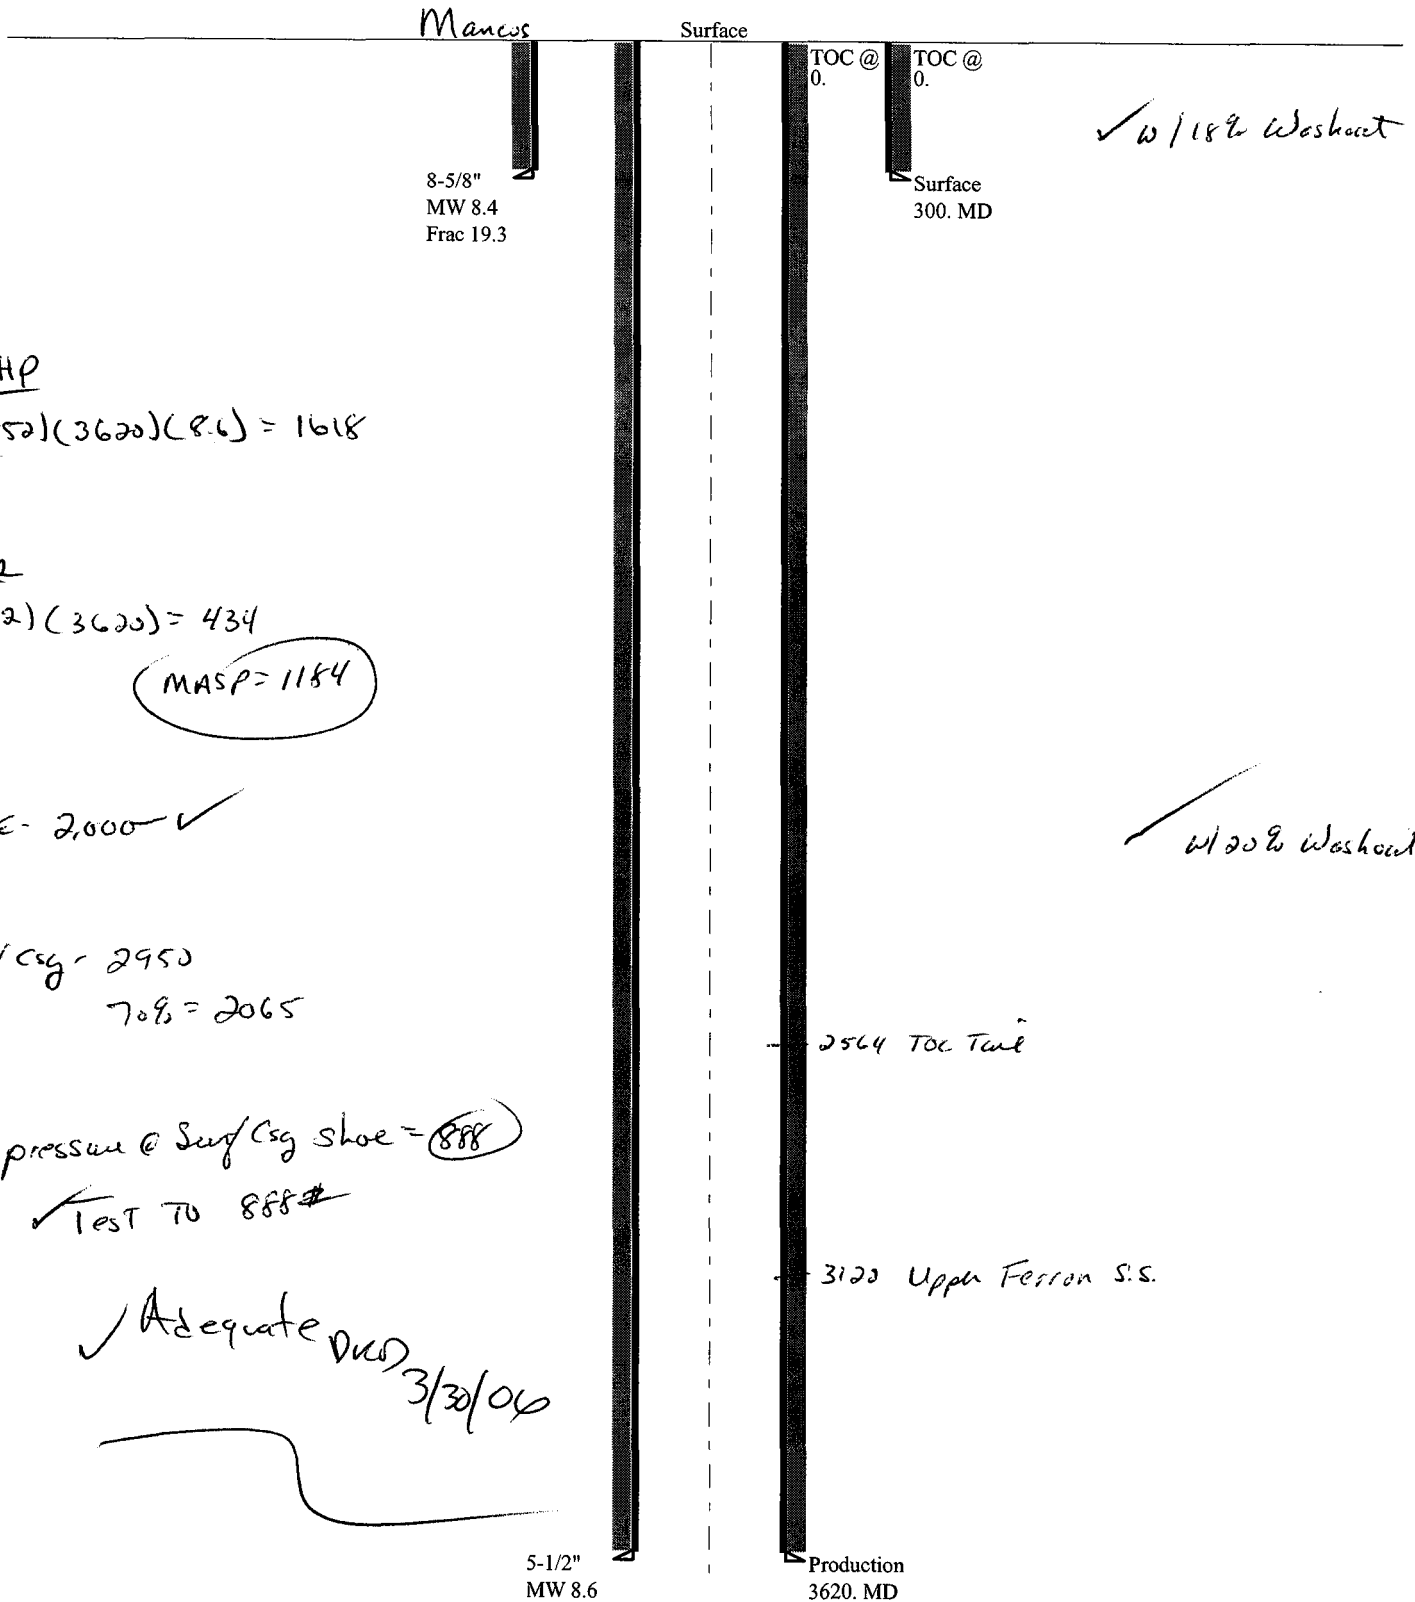 Mancos
Surface
TOC @ TOC @
0. 0.
✓ w/18% Washout
8-5/8"
MW 8.4
Frac 19.3
Surface
300. MD
HP
52)(3620)(8.6) = 1618
2)(3620) = 434
MASP = 1184
E- 2,000 ✓
✓ w/20% Washout
Csg - 2950
70% = 2065
2564 TOC Tail
pressure @ Surf Csg shoe = 888
✓ Test TO 888#
3120 Upper Ferron S.S.
✓ Adequate DKD
3/30/06
5-1/2"
MW 8.6
Production
3620. MD